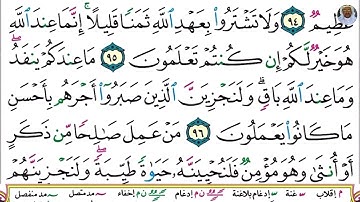 عَظِيمٌ ٩٤ وَلَا تَشْتَرُوا۟ بِعَهْدِ ٱللَّهِ ثَمَنًا قَلِيلًا ۚ إِنَّمَا عِندَ ٱللَّهِ
هُوَ خَيْرٌ لَّكُمْ إِن كُنتُمْ تَعْلَمُونَ ٩٥ مَا عِندَكُمْ يَنفَدُ ۖ
وَمَا عِندَ ٱللَّهِ بَاقٍ ۗ وَلَنَجْزِيَنَّ ٱلَّذِينَ صَبَرُوٓا۟ أَجْرَهُم بِأَحْسَنِ
مَا كَانُوا۟ يَعْمَلُونَ ٩٦ مَنْ عَمِلَ صَٰلِحًا مِّن ذَكَرٍ
أَوْ أُنثَىٰ وَهُوَ مُؤْمِنٌ فَلَنُحْيِيَنَّهُۥ حَيَوٰةً طَيِّبَةً ۖ وَلَنَجْزِيَنَّهُمْ
م إقلاب غنة إدغام بلاغنة ن م إدغام ن م إخفاء مد متصل مد منفصل